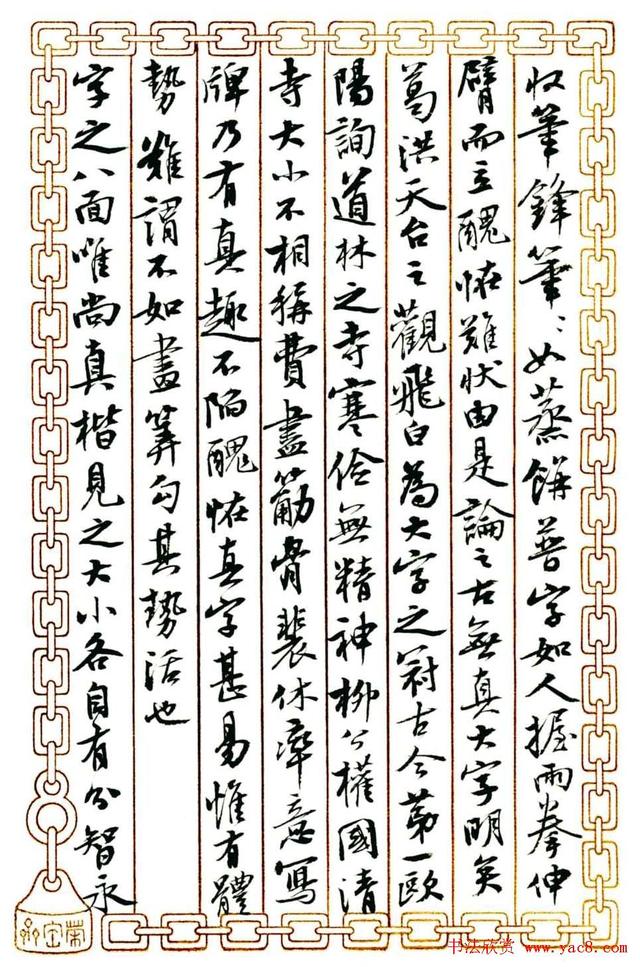 收筆鋒筆〻如蒸餅普字如人握兩拳伸
臂而立醜怪難狀由是論之古無真大字明矣
葛洪天台之觀飛白為大字之冠古今第一歐
陽詢道林之寺寒儉無精神柳公權國清
寺大小不相稱費盡筋骨裴休率意寫
牌乃有真趣不陷醜怪真字甚易惟有體
勢難謂不如畫筭勾其勢活也
字之八面唯尚真楷見之大小各自有分智永
书法欣赏 www.yac8.com